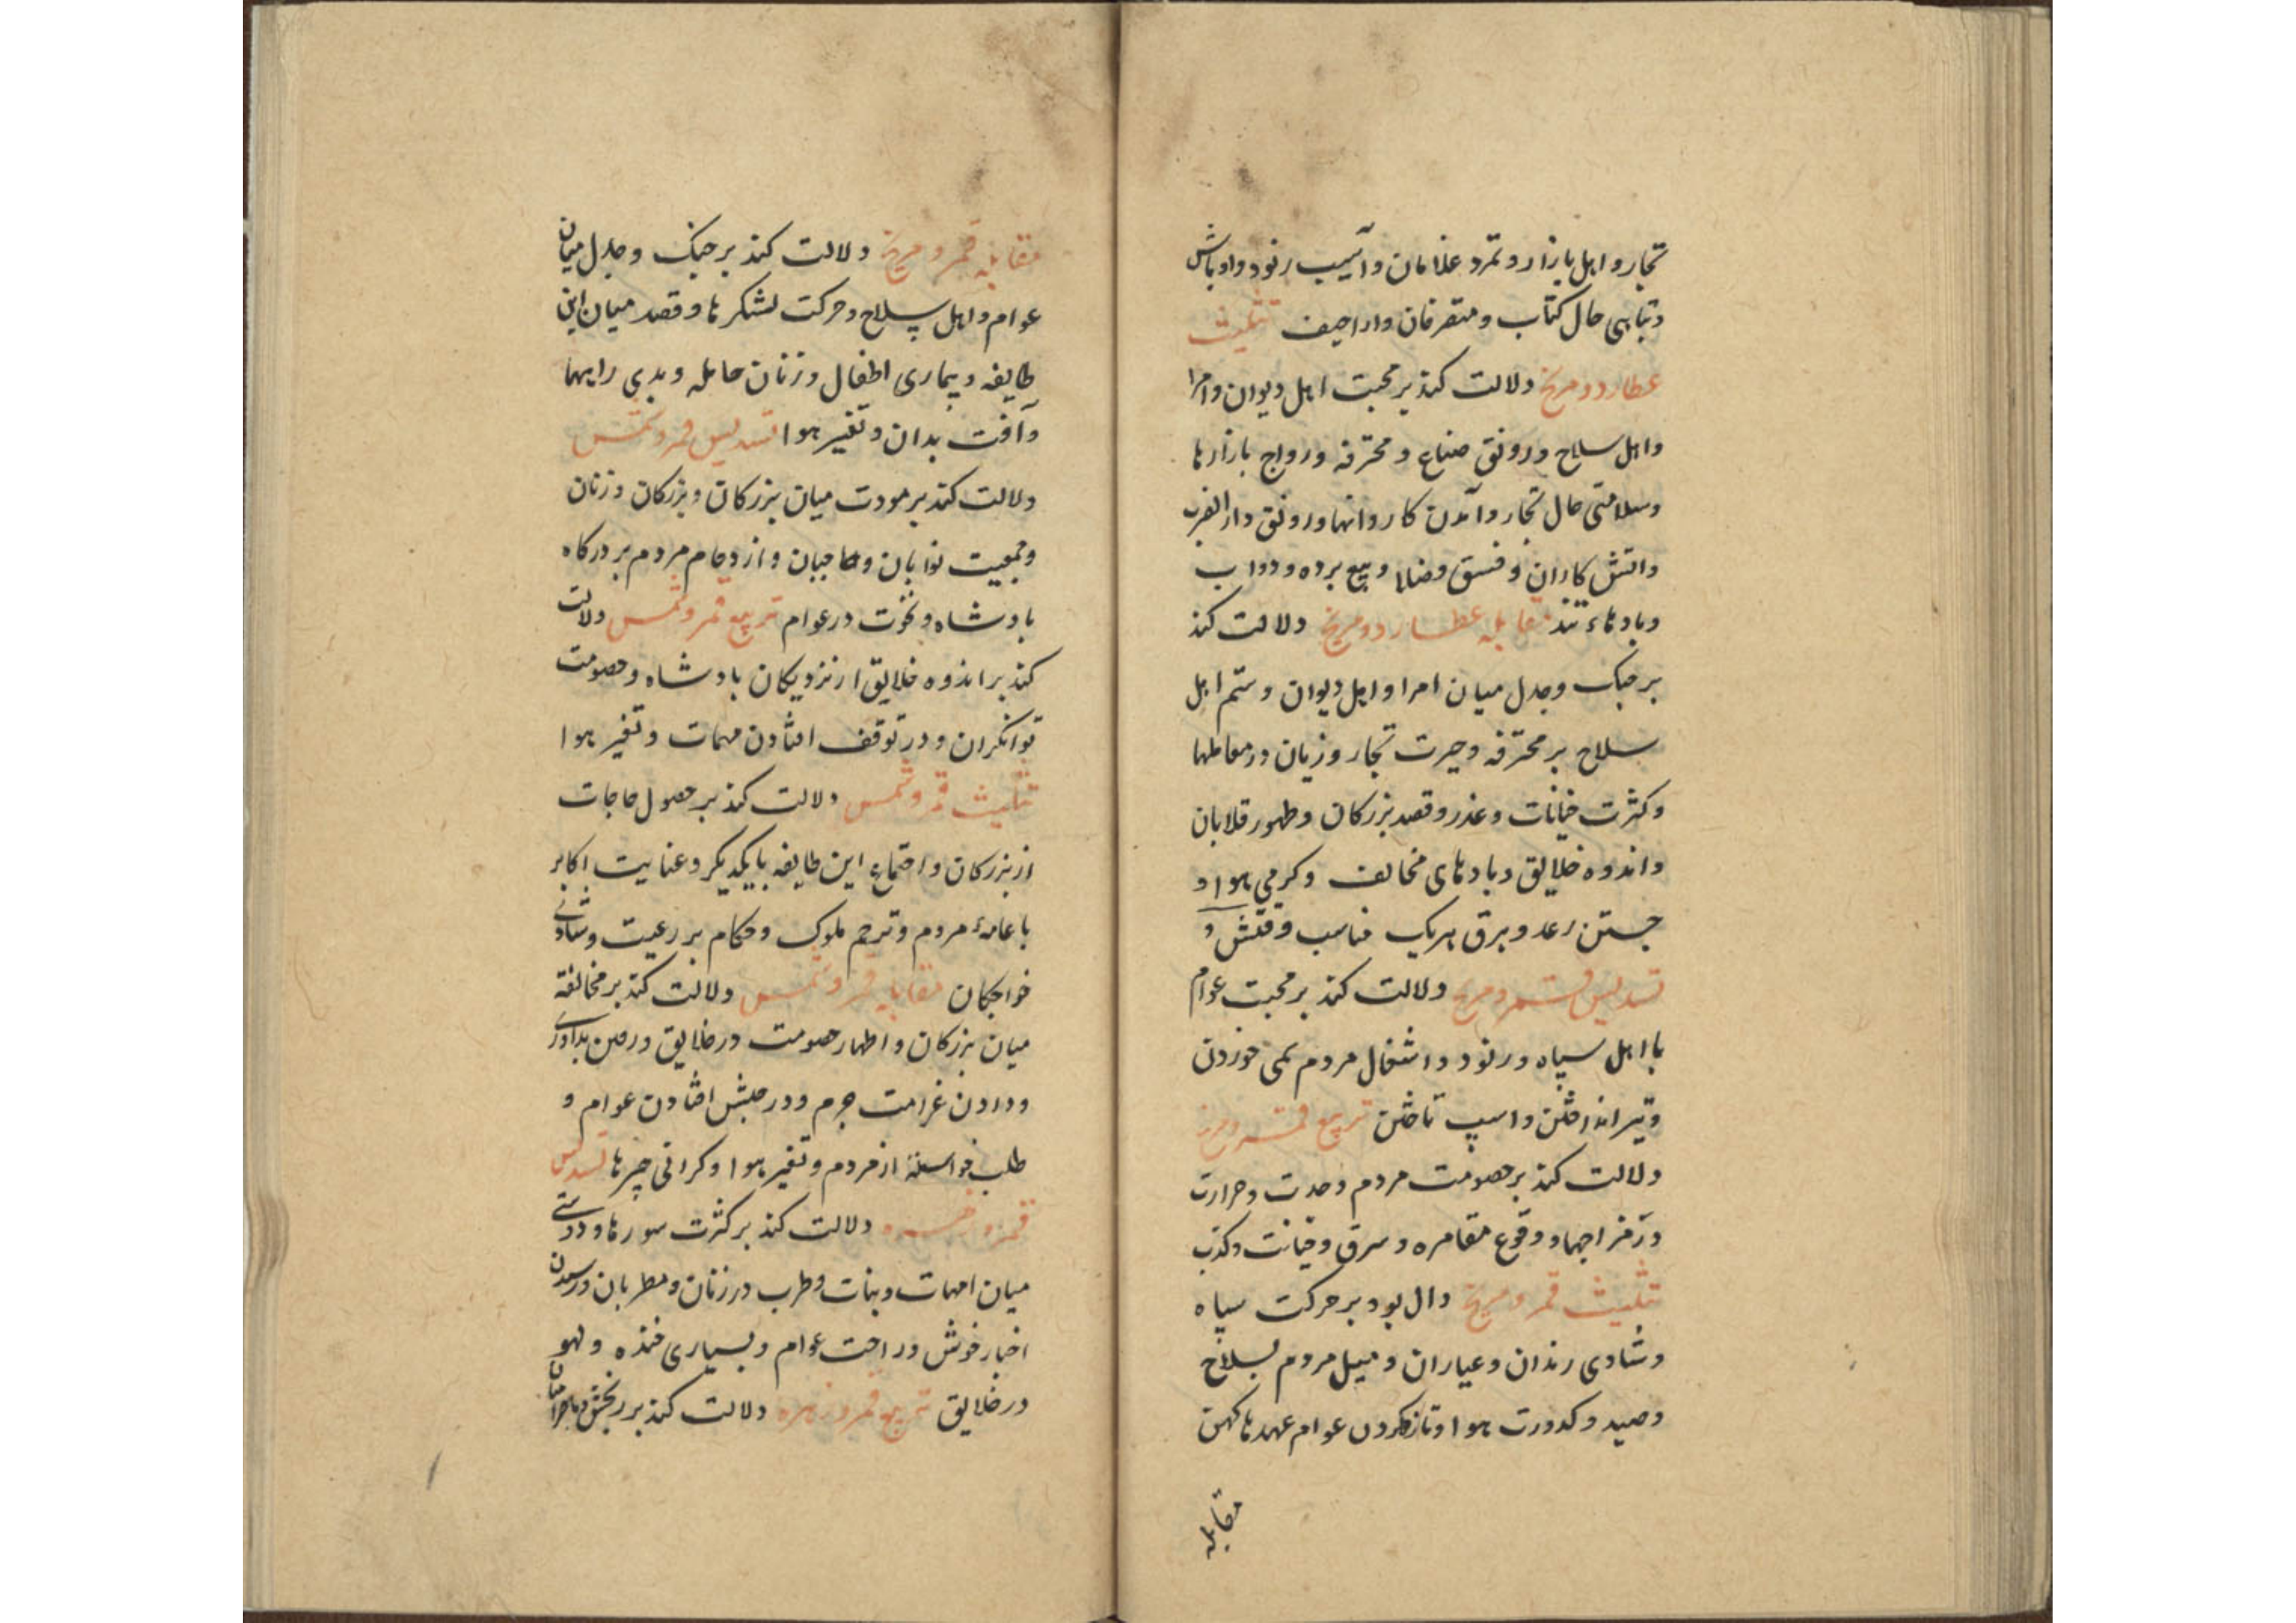 تجار و اهل بازار و تمرد غلامان و آسیب رنود و اوباش
و تباهی حال کتاب و متفرقان و اراجیف تثلیث
عطارد و مریخ دلالت کند بر محبت اهل دیوان و امرا
و اهل سلاح و رونق صناع و محترفه و رواج بازارها
و سلامتی حال تجار و آمدن کاروانها و رونق دار الضرب
و اتش کاران و فسق و بیع برده و دواب
و بادهاء تند مقابله عطارد و مریخ دلالت کند
بر جنک و جدل میان امرا و اهل دیوان و ستم اهل
سلاح بر محترفه و حیرت تجار و زیان در معاملها
و کثرت خیانات و غدر و قصد بزرکان و ظهور قلابان
و اندوه خلایق و بادهای مخالف و کرمی هوا و
جستن رعد و برق هریک مناسب وقتش و
تسدیس قمر و مریخ دلالت کند بر محبت عوام
با اهل سپاه و رنود و اشتغال مردم بمی خوردن
و تیر انداختن و اسپ تاختن تربیع قمر و مریخ
دلالت کند بر خصومت مردم و حدت و حرارت
در مزاجها و وقوع مقامره و سرق و خیانت و کذب
تثلیث قمر و مریخ دال بود بر حرکت سپاه
و شادی رندان و عیاران و میل مردم بسلاح
و صید و کدورت هوا و تازکردن عوام عهدها کهن
مقابله
مقابله قمر و مریخ دلالت کند بر جنک و جدل میان
عوام و اهل سلاح و حرکت لشکرها و قصد میان این
طایفه و بیماری اطفال و زنان حامله و بدی رایها
و آفت بدان و تغیر هوا تسدیس قمر و شمس
دلالت کند بر مودت میان بزرکان و بزرکان و زنان
و جمعیت نوابان و حاجبان و ازدحام مردم بر درکاه
بادشاه و نخوت در عوام تربیع قمر و شمس دلالت
کند بر اندوه خلایق از نزدیکان بادشاه و خصومت
توانکران و در توقف افتادن مهمات و تغیر هوا
تثلیث قمر و شمس دلالت کند بر حصول حاجات
از بزرکان و اجتماع این طایفه با یکدیکر و عنایت اکابر
با عامهٔ مردم و ترحم ملوک و حکام بر رعیت و شادی
خواجکان مقابله قمر و شمس دلالت کند بر مخالفة
میان بزرکان و اظهار خصومت در خلایق و رمیدن
و دادن غرامت جرم و در حبس افتادن عوام و
طلب مردم و تغیر هوا و کرانی چیزها تسدیس
قمر و زهره دلالت کند بر کثرت سورها و دوستی
میان امهات و بنات و طرب در زنان و مطربان و رسیدن
اخبار خوش و راحت عوام و بسیاری خنده و لهو
در خلایق تربیع قمر و زهره دلالت کند بر رنجش